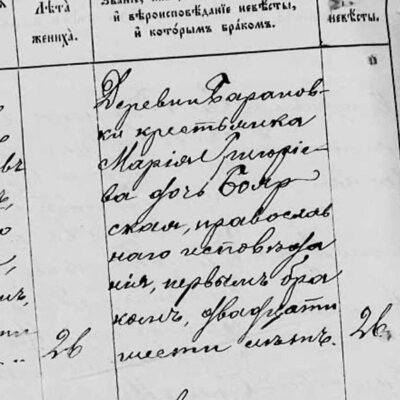 Лѣта
жениха.
и вѣроисповѣданіе невѣсты,
и которымъ бракомъ.
невѣсты.
Деревни Баранов-
ки крестьянка
Марія Григоріе-
ва дочь Бояр
ская, православ
наго исповѣда
нія, первымъ бра
комъ, двадцати
шести лѣтъ.
26
26